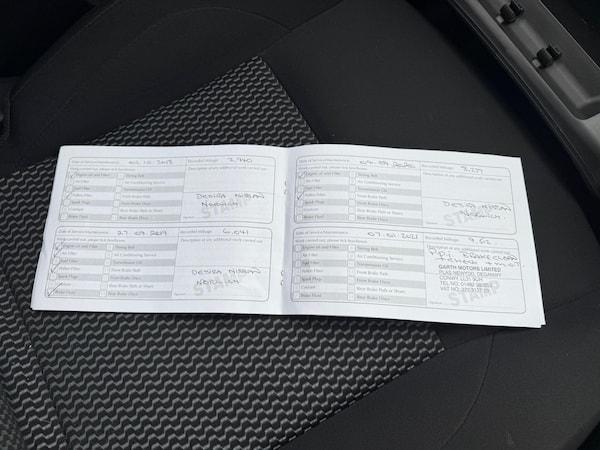 Date of Service/Maintenance 02.10.2018 Recorded Mileage 2,940
Work carried out, please tick box/boxes Description of any additional work carried out
Engine oil and Filter Timing Belt
Air Filter Air Conditioning Service
Fuel Filter Transmission Oil
Pollen Filter Front Brake Pads
Spark Plugs Front Brake Discs
Coolant Rear Brake Pads or Shoes
Brake Fluid Rear Brake Discs
DESIRA NISSAN
NORWICH
STAMP
Date of Service/Maintenance 27.09.2019 Recorded Mileage 6,041
Work carried out, please tick box/boxes Description of any additional work carried out
Engine oil and Filter Timing Belt
Air Filter Air Conditioning Service
Fuel Filter Transmission Oil
Pollen Filter Front Brake Pads
Spark Plugs Front Brake Discs
Coolant Rear Brake Pads or Shoes
Brake Fluid Rear Brake Discs
DESIRA NISSAN
NORWICH
STAMP
Date of Service/Maintenance Recorded Mileage
Work carried out, please tick box/boxes Description of any additional work carried out
Engine oil and Filter Timing Belt
Air Filter Air Conditioning Service
Fuel Filter Transmission Oil
Pollen Filter Front Brake Pads
Spark Plugs Front Brake Discs
Coolant Rear Brake Pads or Shoes
Brake Fluid Rear Brake Discs
DESIRA NISSAN
NORWICH
STAMP
Date of Service/Maintenance 2021 Recorded Mileage
Work carried out, please tick box/boxes Description of any additional work carried out
Engine oil and Filter Timing Belt
Air Filter Air Conditioning Service
Fuel Filter Transmission Oil
Pollen Filter Front Brake Pads
Spark Plugs Front Brake Discs
Coolant Rear Brake Pads or Shoes
Brake Fluid Rear Brake Discs
BRAKE CLEAN
GARTH MOTORS LIMITED
DEGANWY
CONWY
TEL NO:
VAT NO:
STAMP